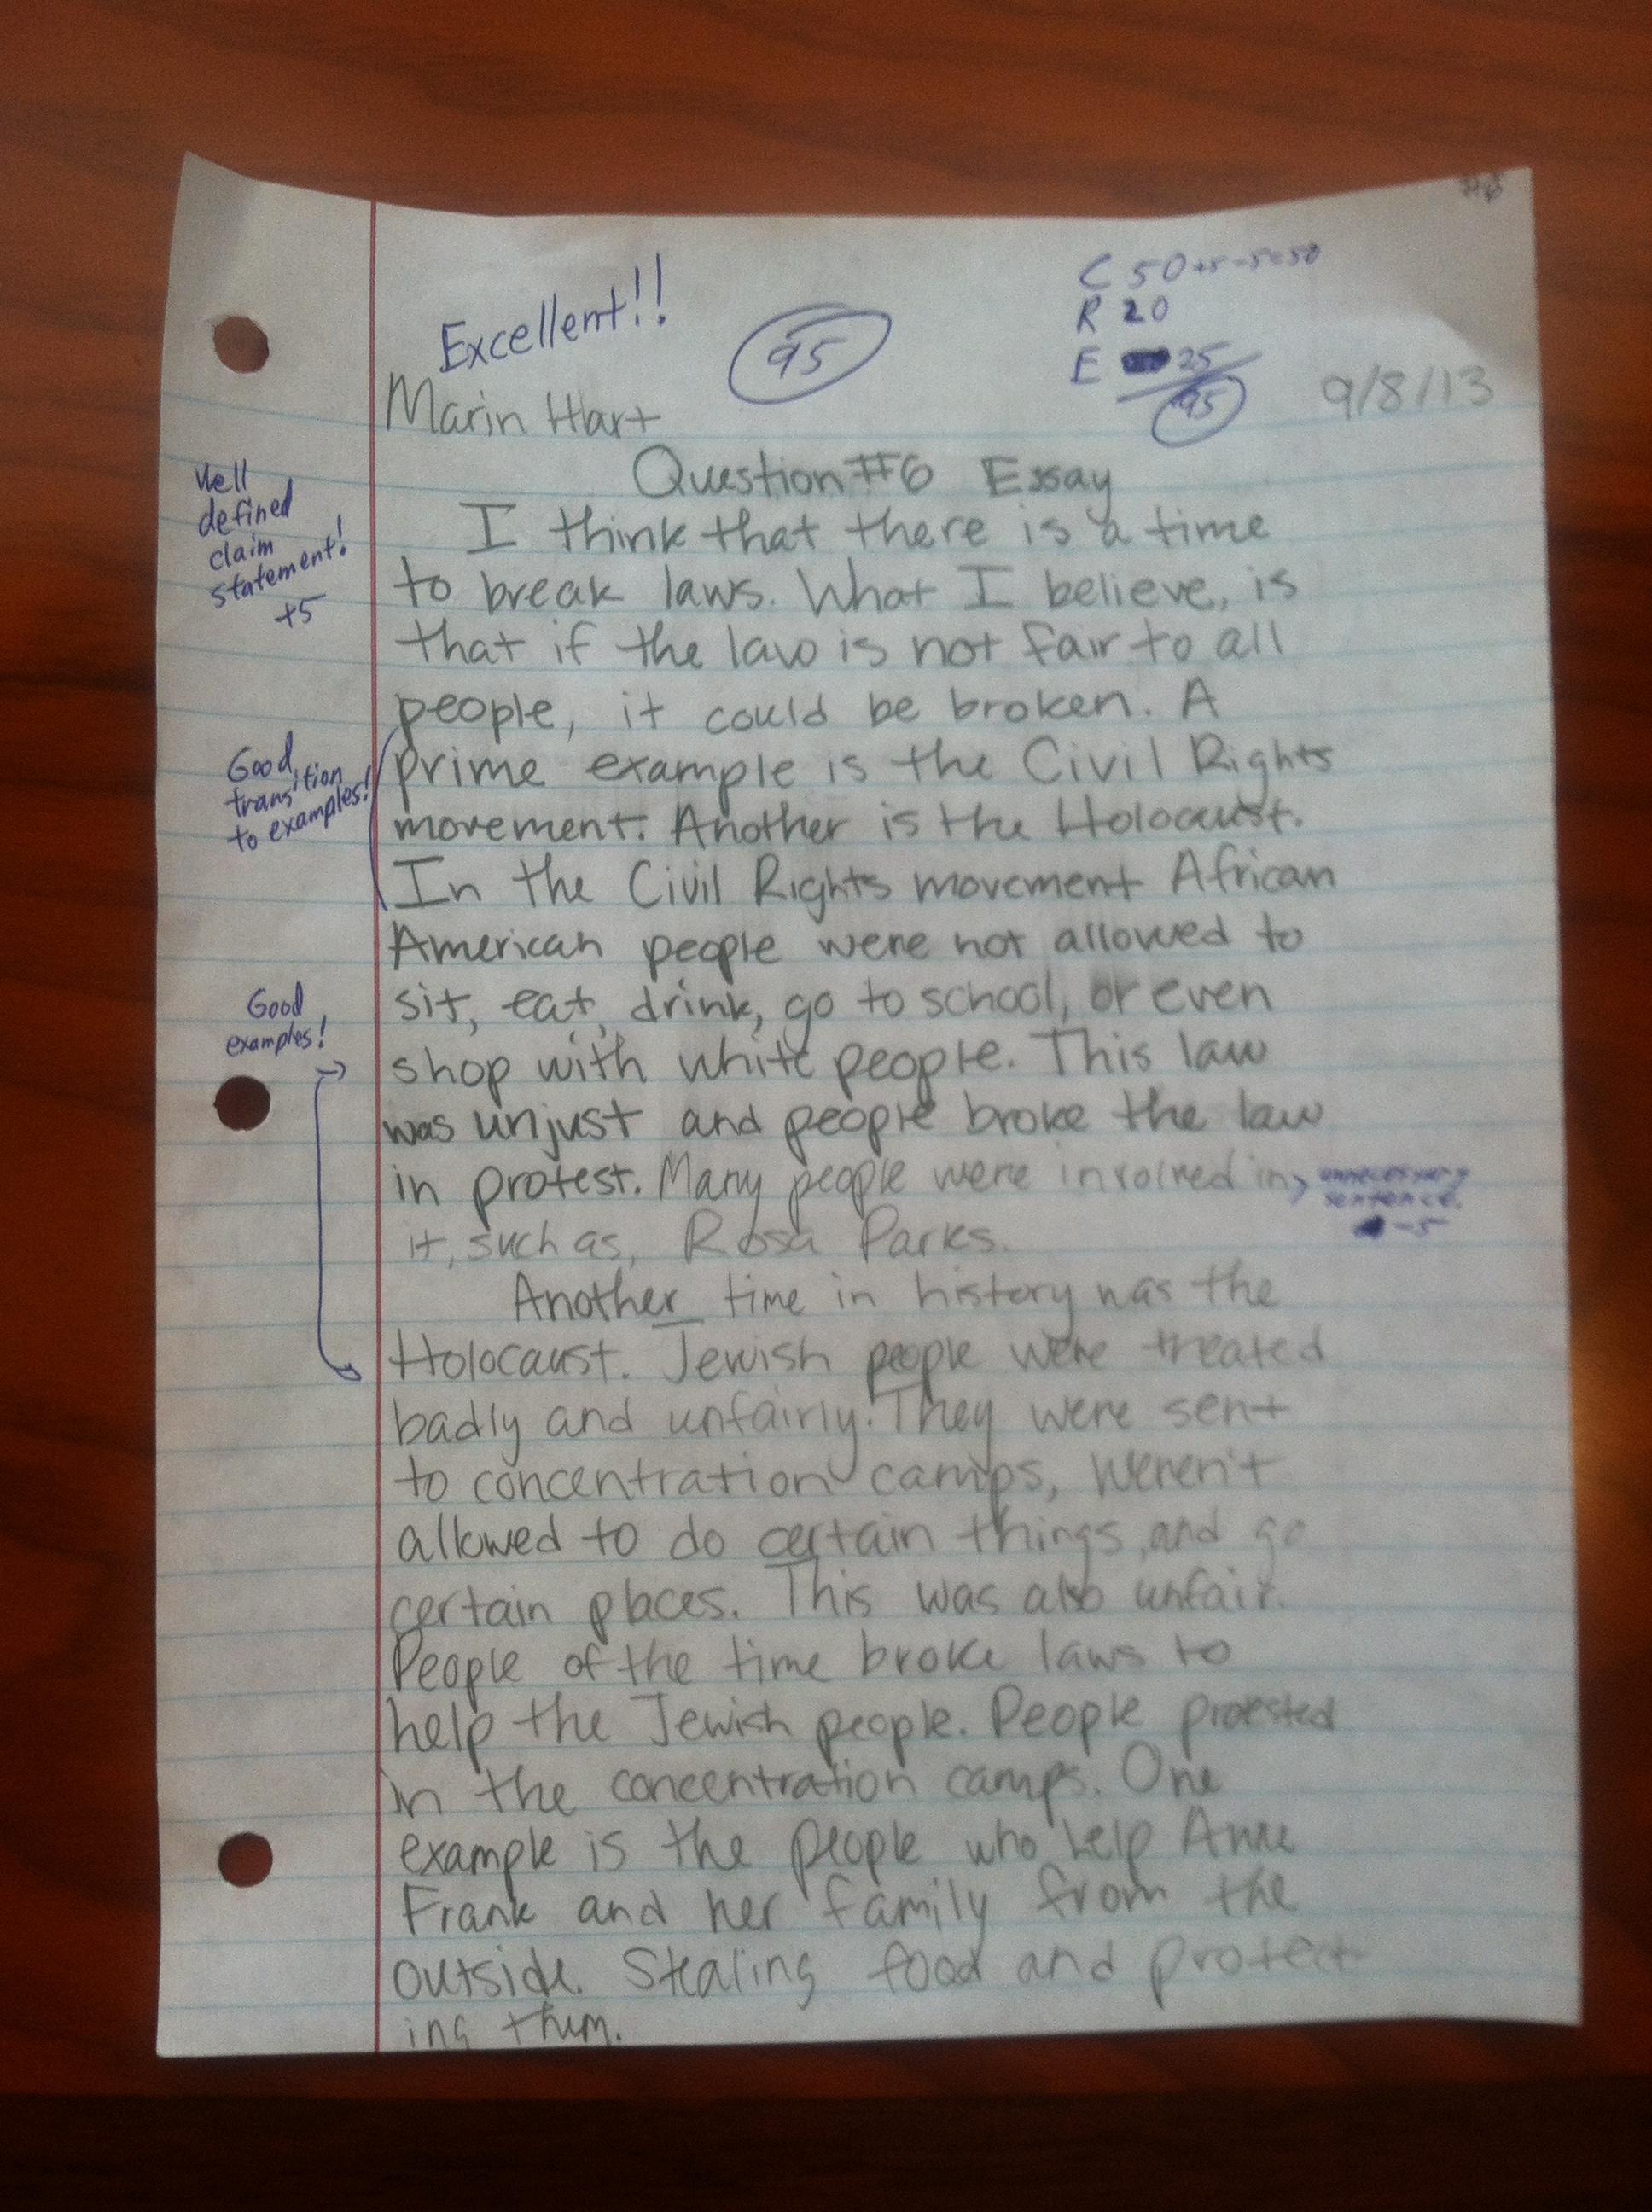 #6
Excellent!!
95
C 50+5-5=50
R 20
E 25
95
Marin Hart
9/8/13
Question #6 Essay
Well
defined
claim
statement!
+5
I think that there is a time
to break laws. What I believe, is
that if the law is not fair to all
people, it could be broken. A
Good
transition
to examples!
prime example is the Civil Rights
movement. Another is the Holocaust.
In the Civil Rights movement African
American people were not allowed to
Good
examples!
sit, eat, drink, go to school, or even
shop with white people. This law
was unjust and people broke the law
in protest. Many people were involved in
unnecessary
sentence.
-5
it, such as, Rosa Parks.
Another time in history was the
Holocaust. Jewish people were treated
badly and unfairly. They were sent
to concentration camps, weren't
allowed to do certain things, and go
certain places. This was also unfair.
People of the time broke laws to
help the Jewish people. People protested
in the concentration camps. One
example is the people who help Anne
Frank and her family from the
outside. Stealing food and protect
ing them.